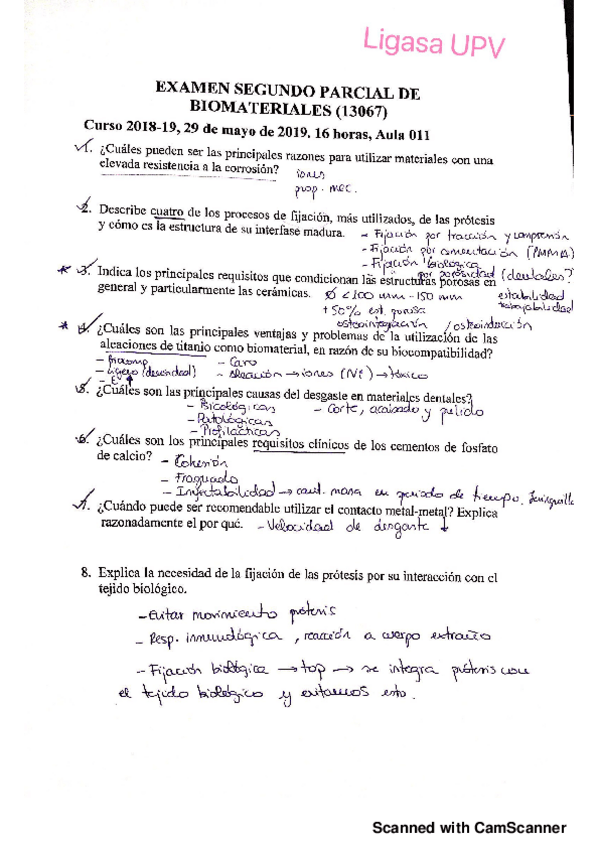 Ligasa UPV
EXAMEN SEGUNDO PARCIAL DE
BIOMATERIALES (13067)
Curso 2018-19, 29 de mayo de 2019. 16 horas, Aula 011
1. ¿Cuáles pueden ser las principales razones para utilizar materiales con una
elevada resistencia a la corrosión? iones
prop. mec.
2. Describe cuatro de los procesos de fijación, más utilizados, de las prótesis
y cómo es la estructura de su interfase madura. - Fijación por tracción y compresión
- Fijación por cementación (PMMA)
- Fijación biológica
por porosidad (dentales?
* 3. Indica los principales requisitos que condicionan las estructuras porosas en
general y particularmente las cerámicas. Ø <100 mm - 150 mm estabilidad
trabajabilidad
+50% est. porosa
osteointegración / osteoinducción
* 4. ¿Cuáles son las principales ventajas y problemas de la utilización de las
aleaciones de titanio como biomaterial, en razón de su biocompatibilidad?
- Caro
- Ligero (densidad) - Aleación → iones (Ni) → tóxico
- E
5. ¿Cuáles son las principales causas del desgaste en materiales dentales?
- Fisiológicas - Corte, acabado y pulido
- Patológicas
- Profilácticas
6. ¿Cuáles son los principales requisitos clínicos de los cementos de fosfato
de calcio? - Cohesión
- Fraguado
- Inyectabilidad → cant. masa en periodo de tiempo. Jeringuilla
7. ¿Cuándo puede ser recomendable utilizar el contacto metal-metal? Explica
razonadamente el por qué. - Velocidad de desgaste ↓
8. Explica la necesidad de la fijación de las prótesis por su interacción con el
tejido biológico.
- Evitar movimiento prótesis
- Resp. inmunológica, reacción a cuerpo extraño
- Fijación biológica → top → se integra prótesis con
el tejido biológico y evitamos esto.
Scanned with CamScanner